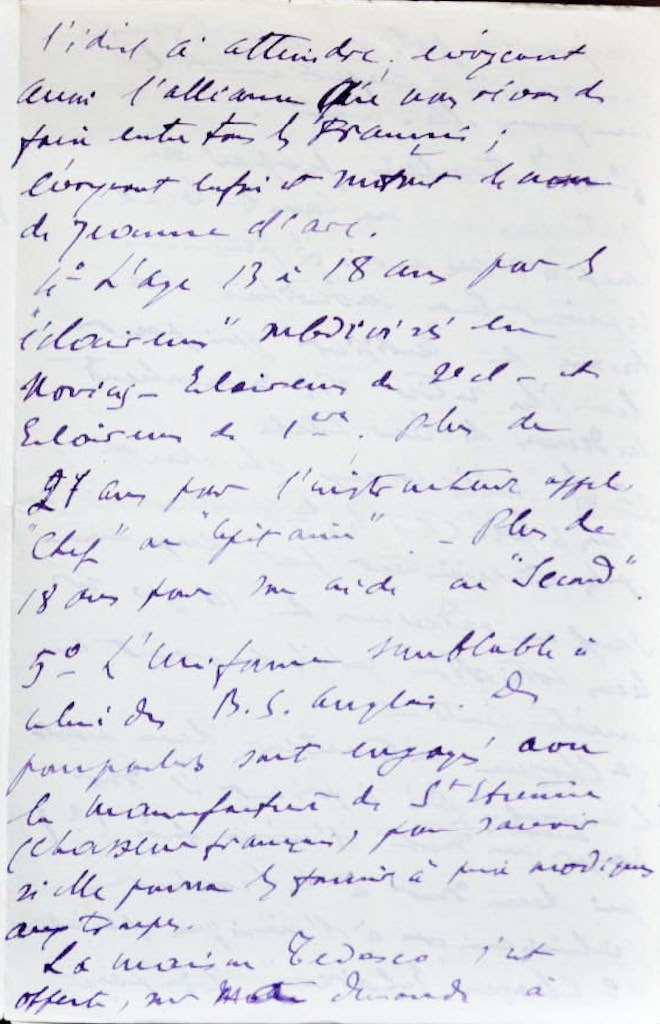 l'idéal à atteindre. évoquant
aussi l'alliance que nous rêvons de
faire entre tous les Français ;
évoquant enfin et surtout le nom
de Jeanne d'arc.
4º L'age 13 à 18 ans pour les
"éclaireurs" subdivisés en
Novices - Eclaireurs de 2e cl - et
Eclaireurs de 1ère. Plus de
27 ans pour l'instructeur appelé
"Chef" ou "Capitaine". - Plus de
18 ans pour son aide ou "Second".
5º L'Uniforme semblable à
celui des B.S. anglais. Des
pourparlers sont engagés avec
la manufacture de St Etienne
(chasseur français) pour savoir
si elle pourra les fournir à prix modiques
aux troupes.
La maison Tedesco s'est
offerte, sur demande à